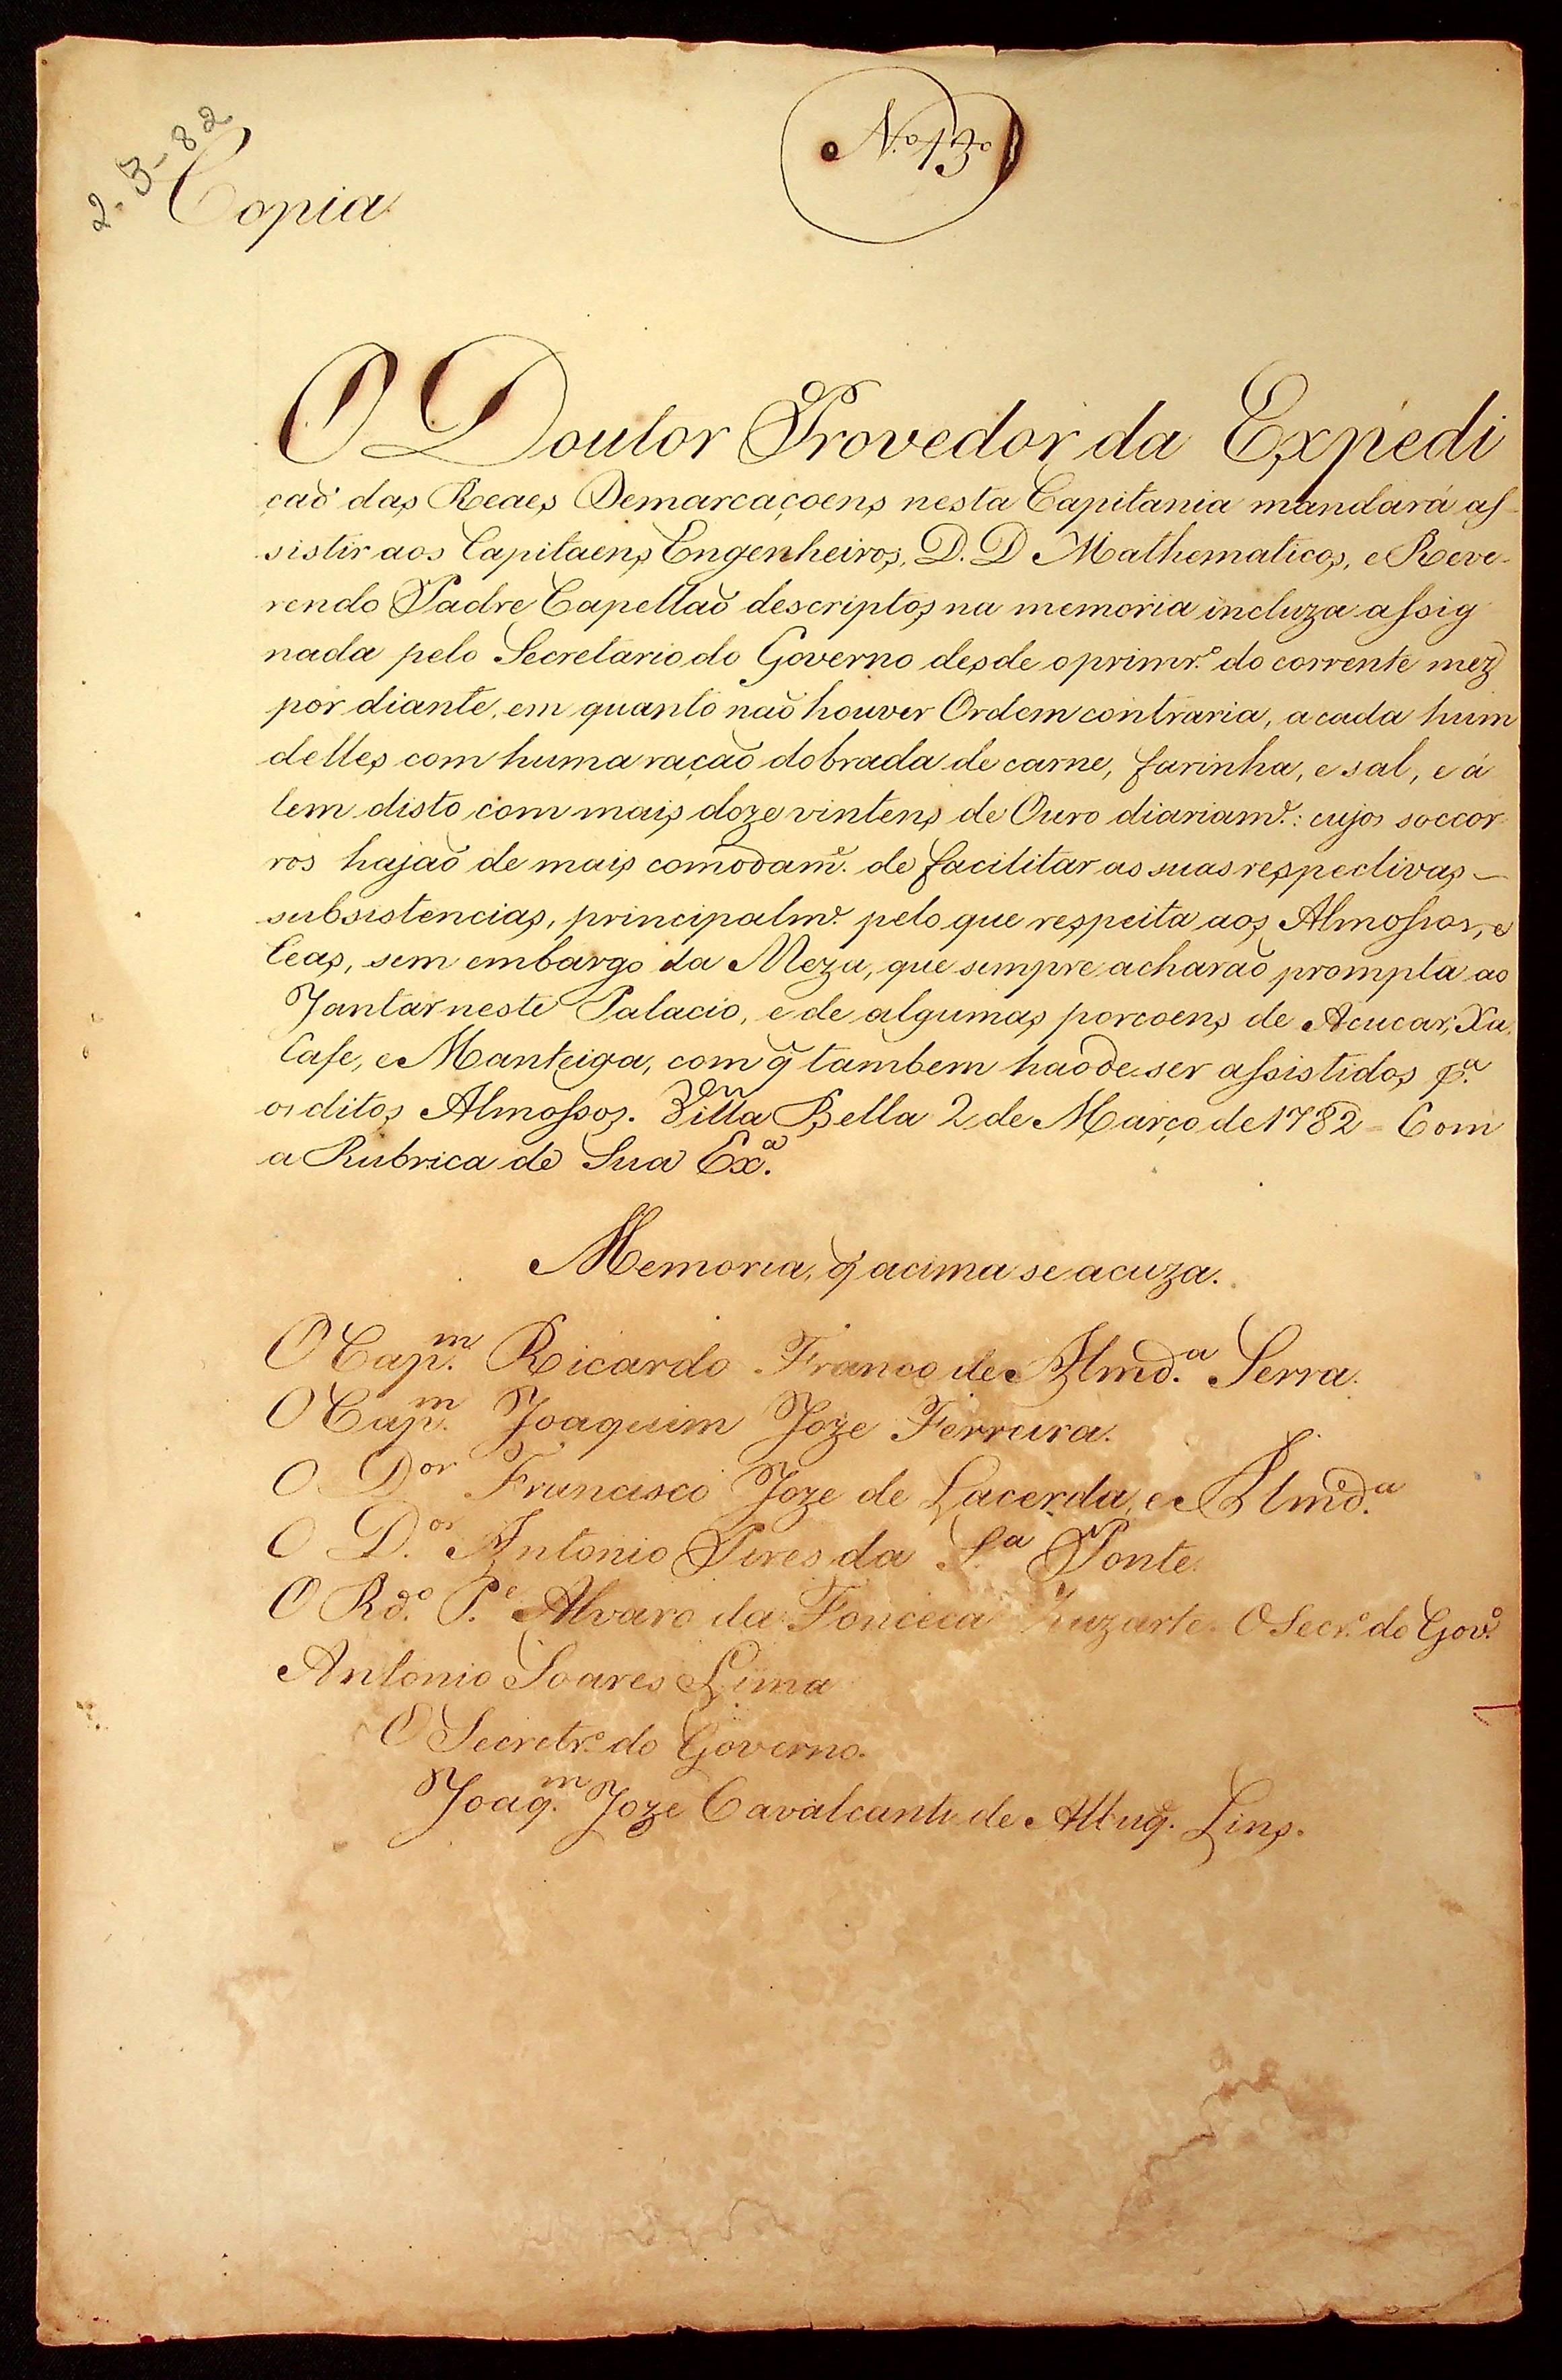 2-3-82
N.º 13º
Copia.
O Doutor Provedor da Expedi
çaõ das Reaes Demarcaçoens nesta Capitania mandará as-
sistir aos Capitaens Engenheiros, D.D Mathematicos, e Reve-
rendo Padre Capellaõ descriptos na memoria incluza assig
nada pelo Secretario do Governo desde o primr.º do corrente mez
por diante, em quanto naõ houver Ordem contraria, a cada hum
delles com huma raçaõ dobrada de carne, farinha, e sal, e á
lem disto com mais doze vintens de Ouro diariam.e: cujos soccor
ros hajaõ de mais comodam.e de facilitar as suas respectivas
subsistencias, principalm.e pelo que respeita aos Almossos, e
Ceas, sem embargo da Meza, que sempre acharaõ prompta ao
Jantar neste Palacio, e de algumas porcoens de Acucar, Xa,
Cafe, e Manteiga, com q̃ tambem haõ de ser assistidos p.ª
os ditos Almossos. Villa Bella 2 de Março de 1782 = Com
a Rubrica de Sua Ex.ª
Memoria, q̃ acima se acuza.
O Cap.m Ricardo Franco de Almd.ª Serra.
O Cap.m Joaquim Joze Ferreira.
O D.or Francisco Joze de Lacerda, e Almd.ª
O D.or Antonio Pires da S.ª Ponte.
O Rd.º P.e Alvaro da Fonceca Zuzarte. O Secr.º do Gov.º
Antonio Soares Lima
O Secretr.º do Governo.
Joaq.m Joze Cavalcanti de Albuq.e Lins.